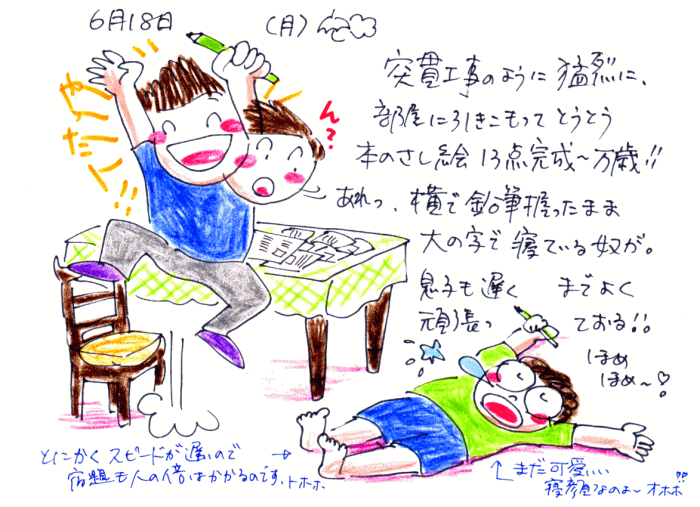 6月18日 (月)
やったー!!
ん?
突貫工事のように猛烈に、
部屋に引きこもってとうとう
本のさし絵13点完成〜万歳!!
あれっ、横で鉛筆握ったまま
大の字で寝ている奴が。
息子も遅くまでよく
頑張っておる!!
ほめ
ほめ〜♡!
とにかくスピードが遅いので
宿題も人の倍はかかるのです、トホホ
→
まだ可愛いい
寝顔なのよ〜オホホ!!